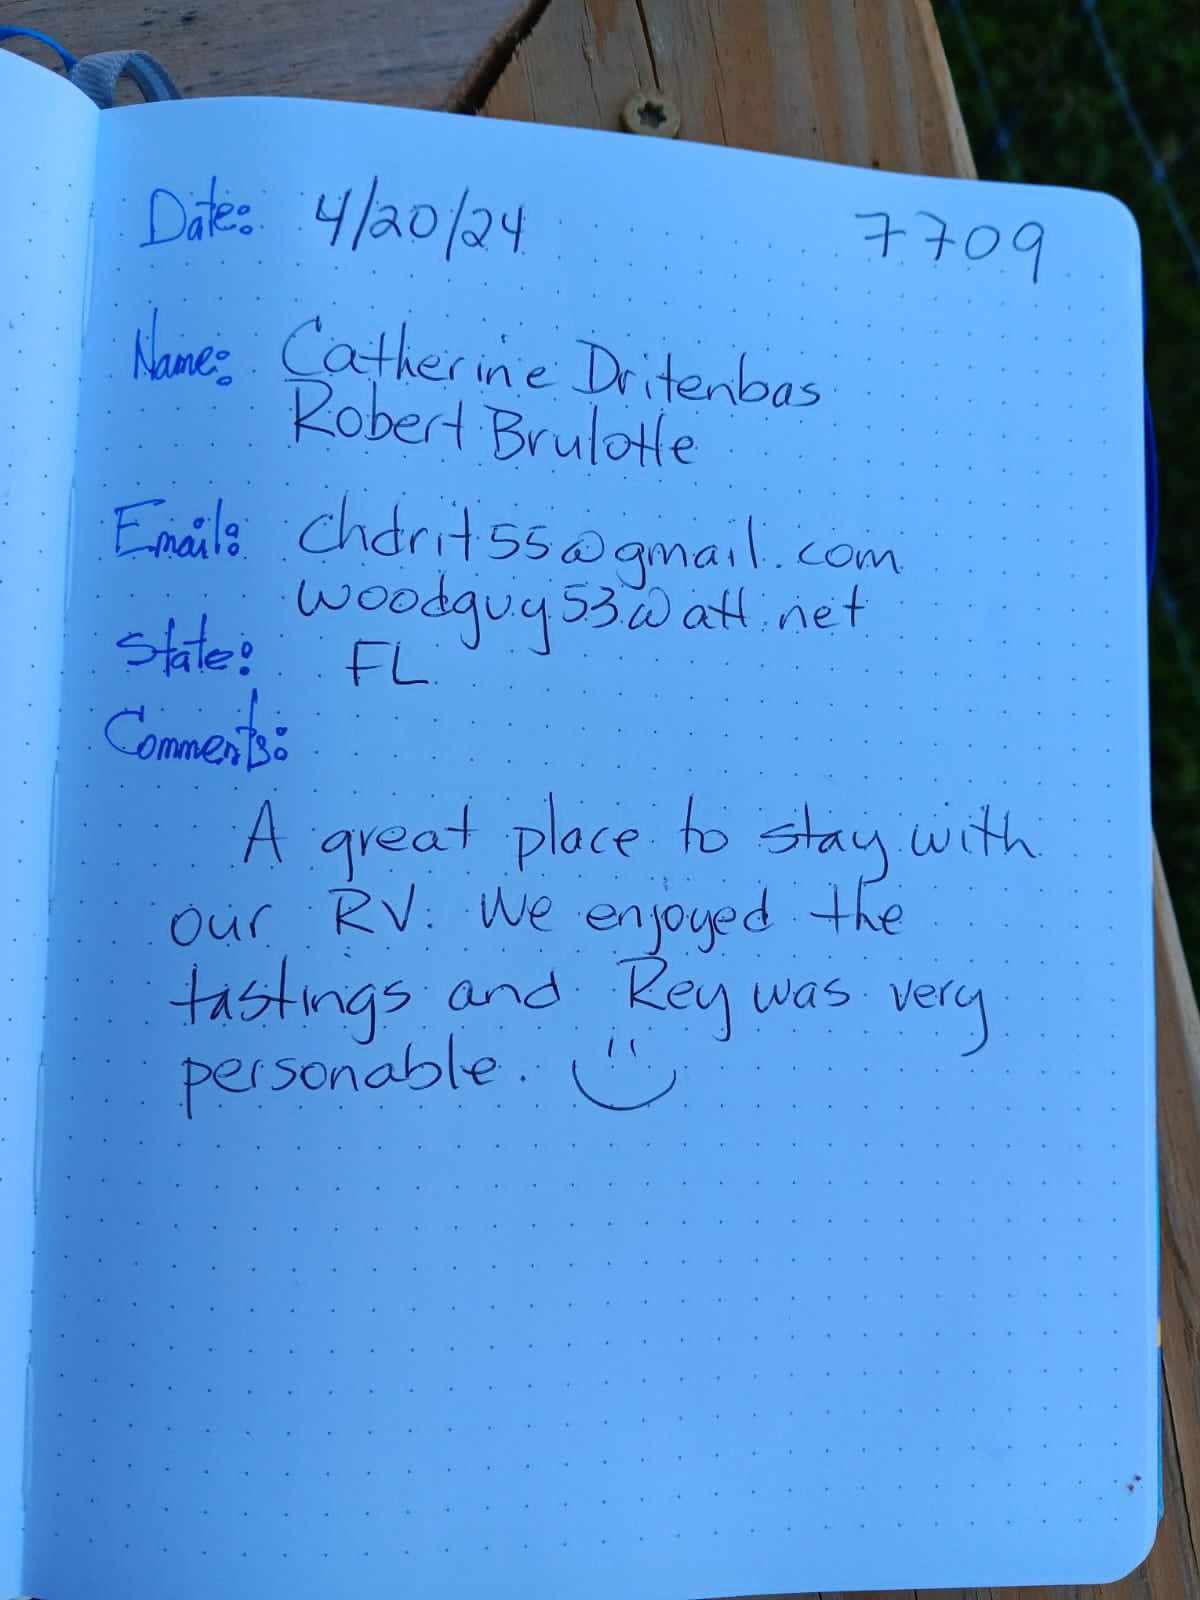 Date: 4/20/24 7709
Name: Catherine Dritenbas
Robert Brulotte
Email: chdrit55@gmail.com
woodguy53@att.net
State: FL
Comments:
A great place to stay with
our RV. We enjoyed the
tastings and Rey was very
personable.